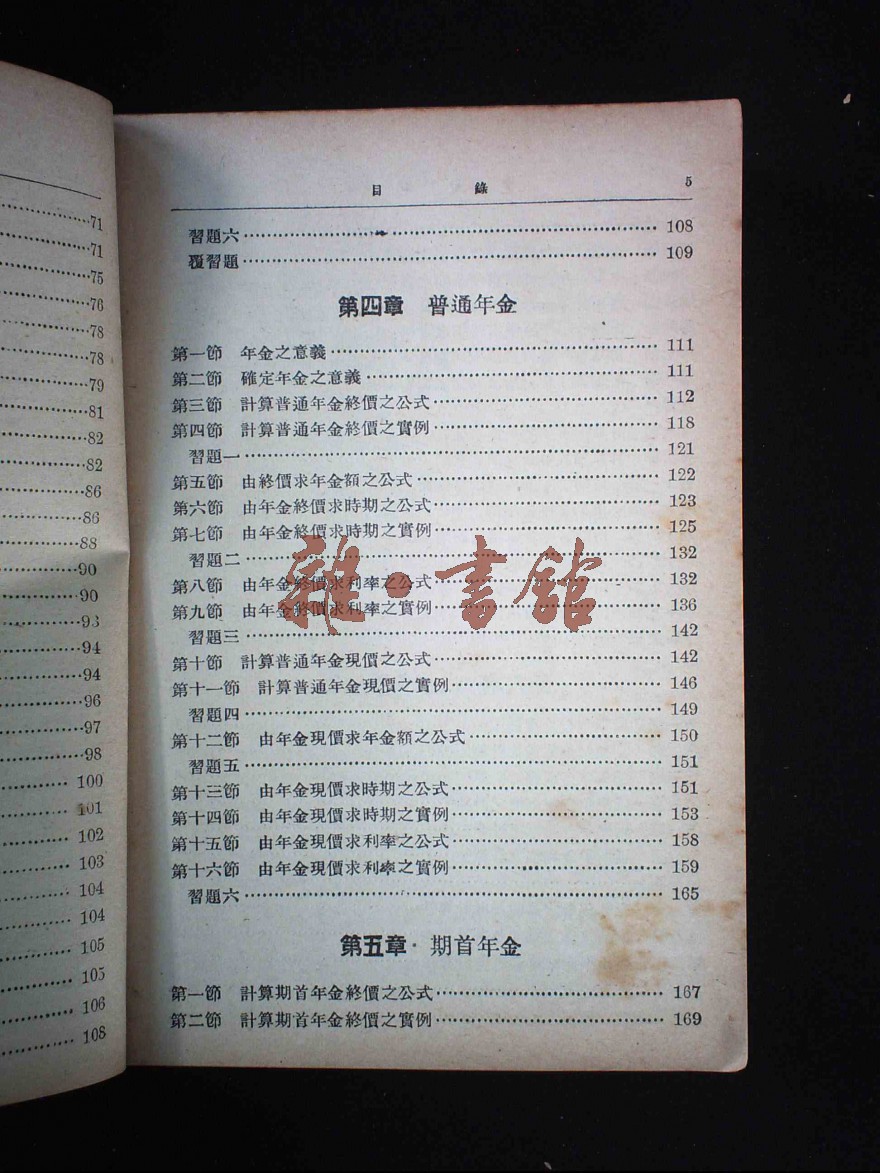 71
71
75
76
78
78
79
81
82
82
86
86
88
90
90
93
94
94
96
97
98
100
101
102
103
104
104
105
105
106
108
目錄 5
習題六 108
覆習題 109
第四章 普通年金
第一節 年金之意義 111
第二節 確定年金之意義 111
第三節 計算普通年金終價之公式 112
第四節 計算普通年金終價之實例 118
習題一 121
第五節 由終價求年金額之公式 122
第六節 由年金終價求時期之公式 123
第七節 由年金終價求時期之實例 125
習題二 132
第八節 由年金終價求利率之公式 132
第九節 由年金終價求利率之實例 136
習題三 142
第十節 計算普通年金現價之公式 142
第十一節 計算普通年金現價之實例 146
習題四 149
第十二節 由年金現價求年金額之公式 150
習題五 151
第十三節 由年金現價求時期之公式 151
第十四節 由年金現價求時期之實例 153
第十五節 由年金現價求利率之公式 158
第十六節 由年金現價求利率之實例 159
習題六 165
第五章 期首年金
第一節 計算期首年金終價之公式 167
第二節 計算期首年金終價之實例 169
雜·書館